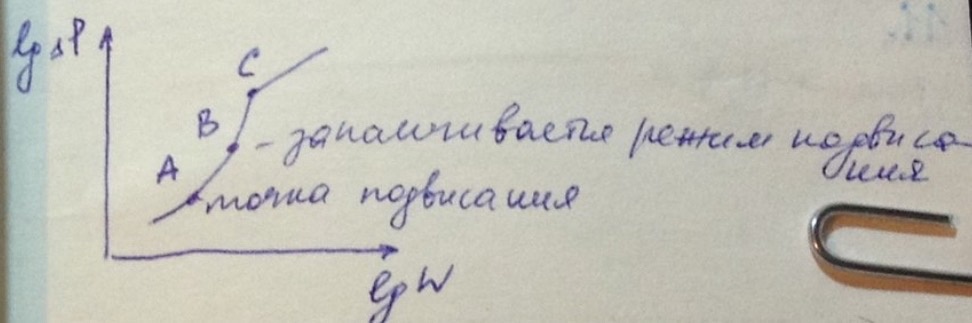 lg ΔP
C
B - заканчивается режим подвиса-
ния
A
точка подвисания
lg W